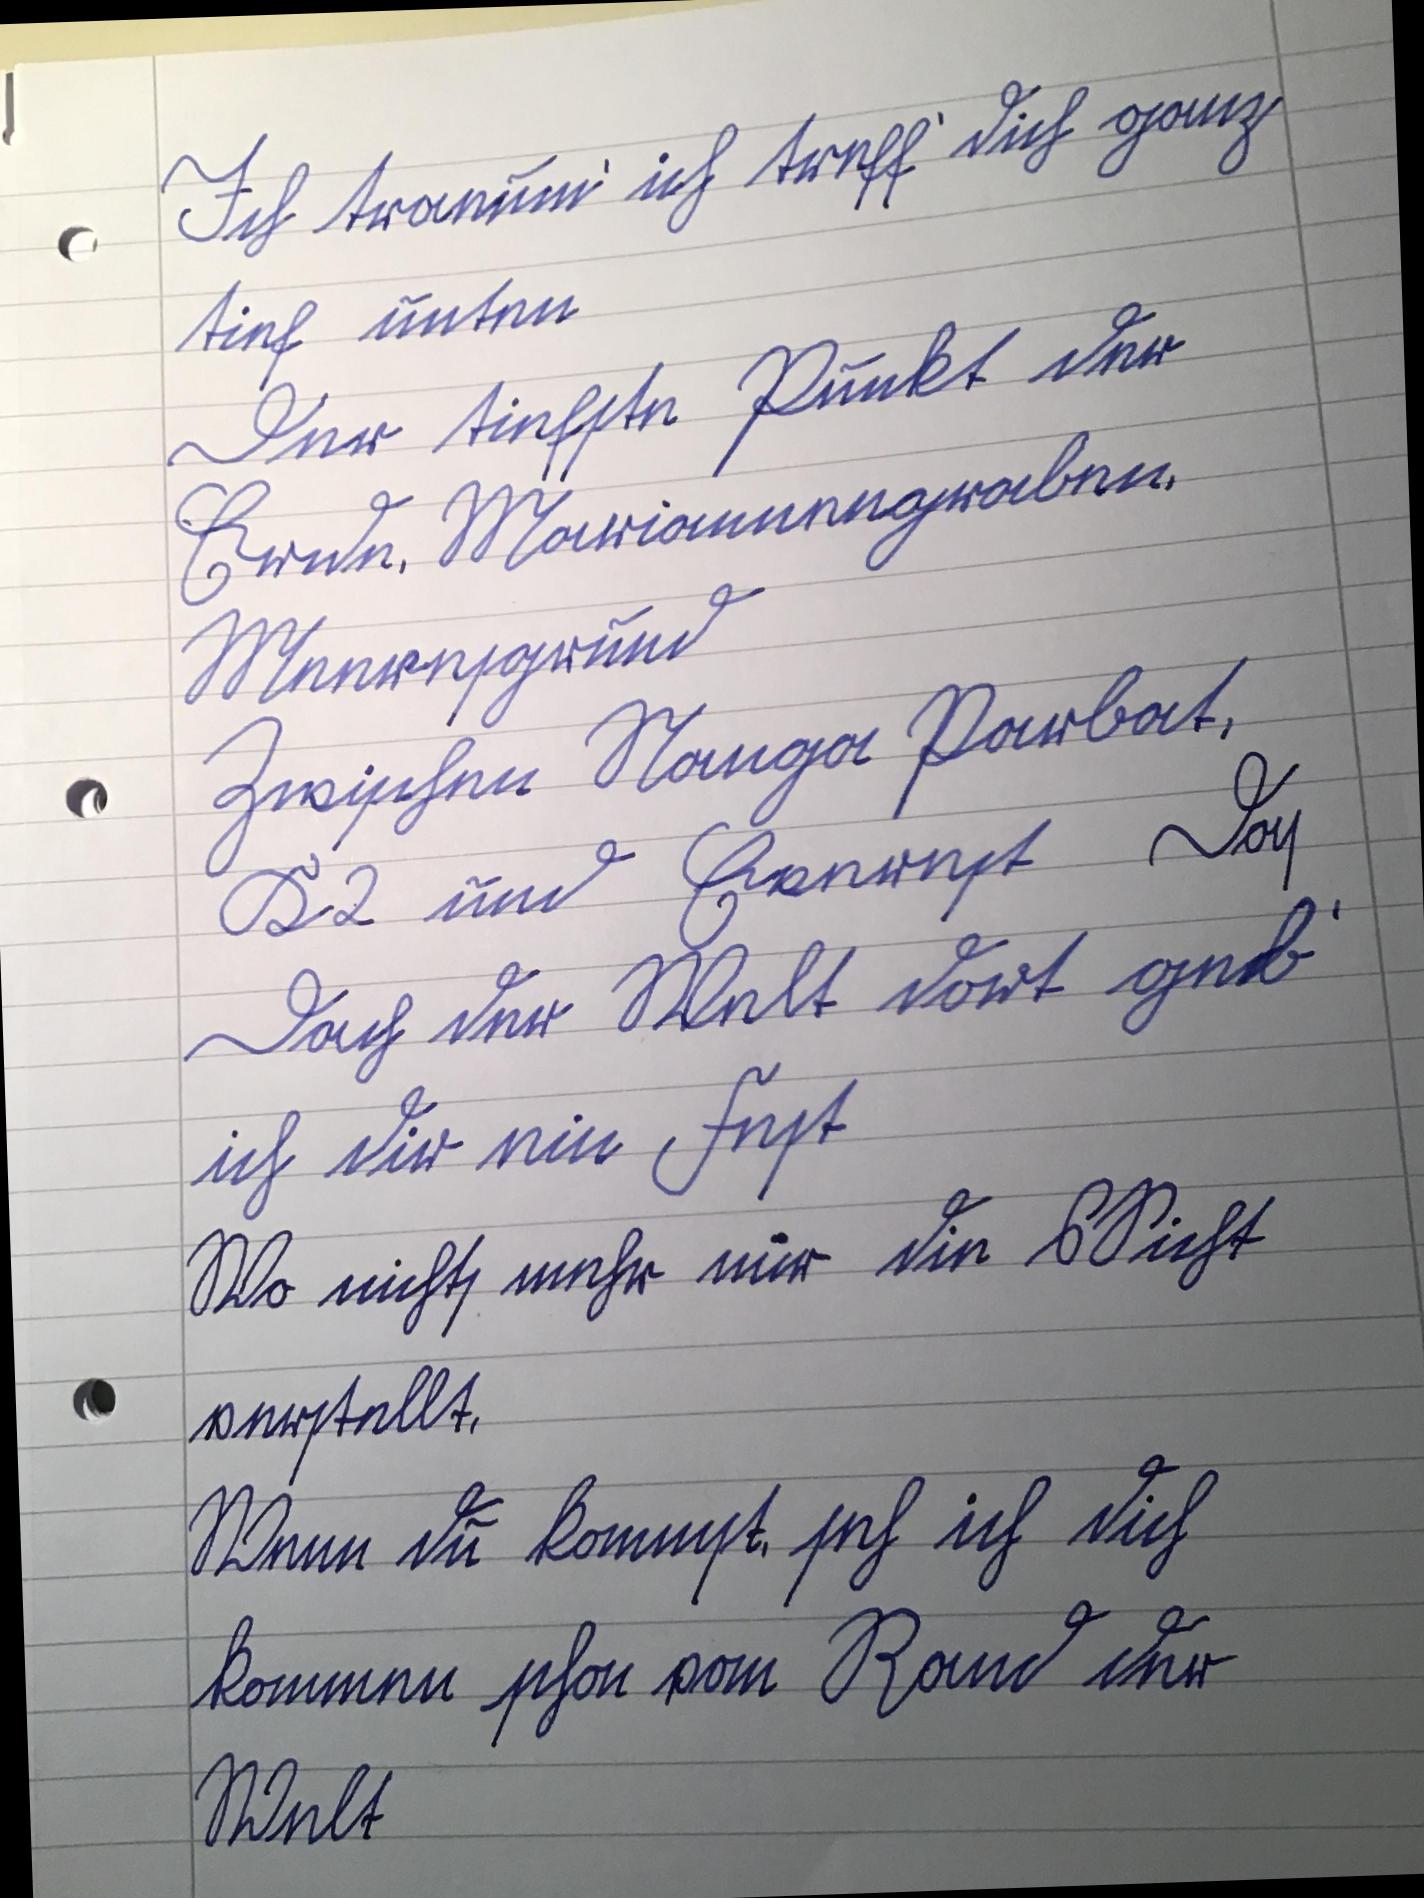 Ich traeum' ich treff' dich ganz
tief unten
Der tiefste Punkt der
Erde, Mariannengraben,
Meeresgrund
Zwischen Nanga Parbat,
K2 und Everest Das
Dach der Welt dort geb'
ich dir ein Fest
Wo nichts mehr mir die Sicht
verstellt,
Wenn du kommst, seh ich dich
kommen schon vom Rand der
Welt